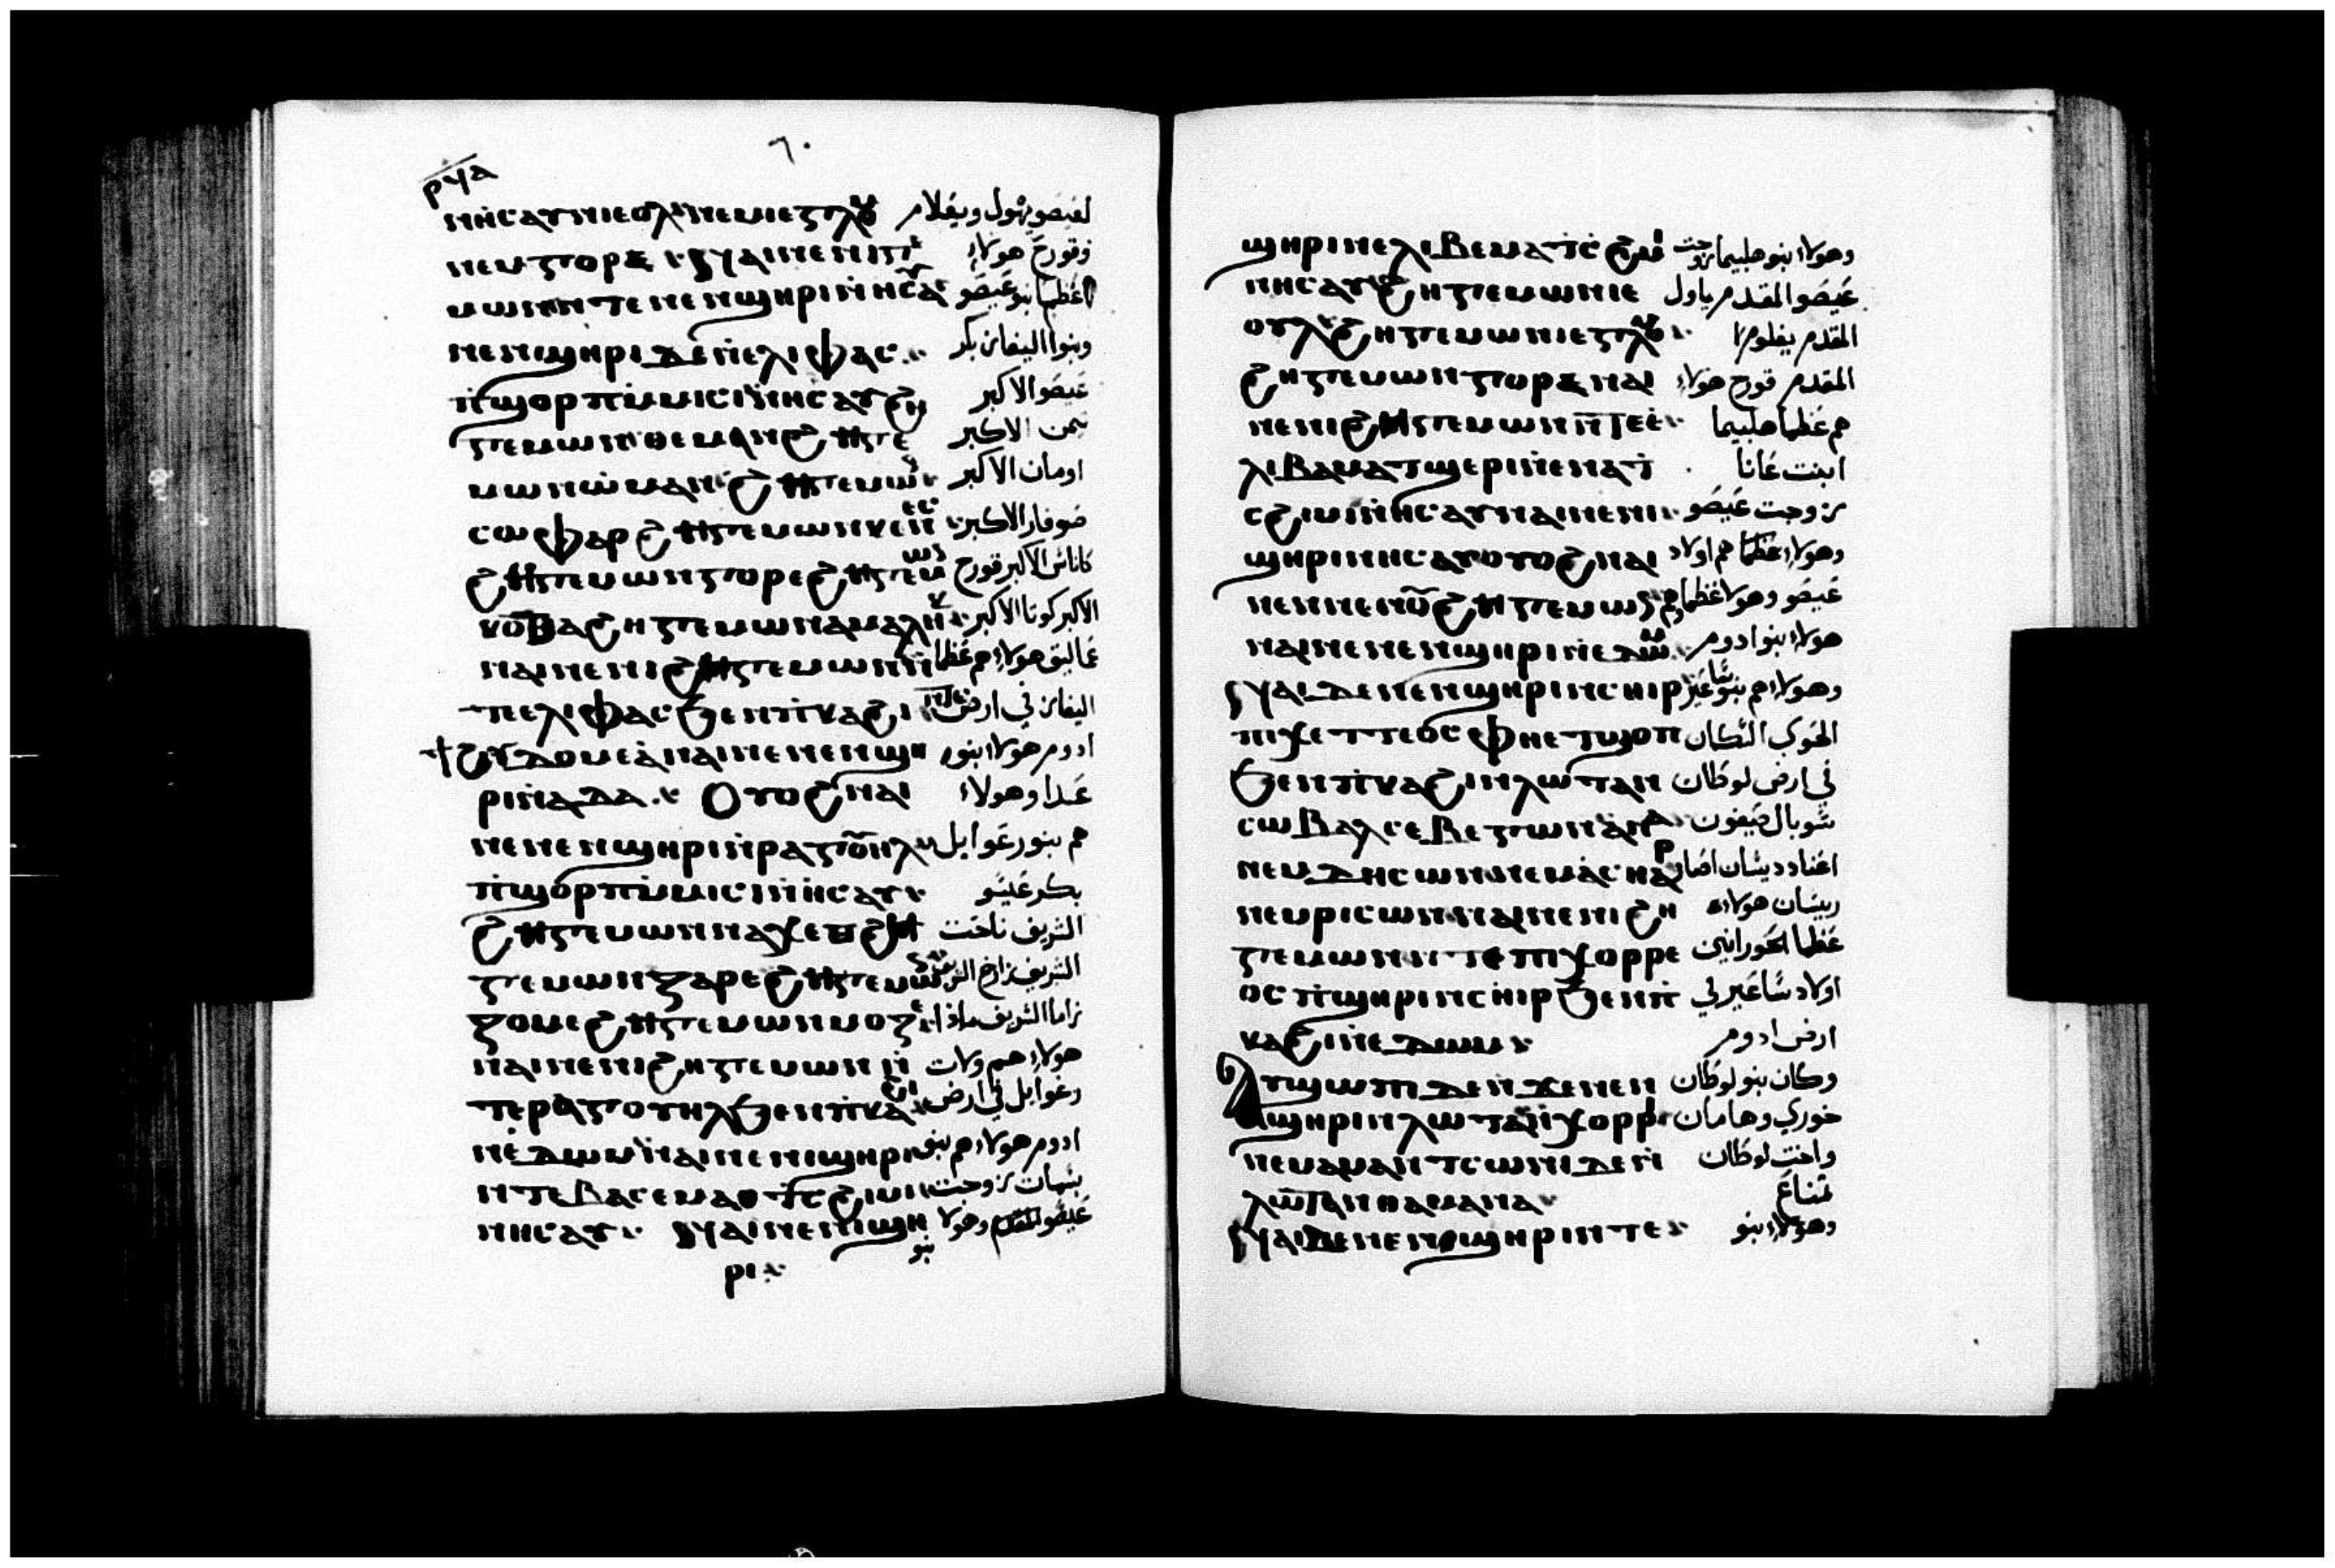 ⲣϥⲁ
٦٠
ⲛⲏⲥⲁⲩ ⲛⲓⲉⲟⲗ ⲛⲉⲙ ⲓⲉⲅⲗⲟⲙ لعيصو يهول ويغلام
ⲛⲉⲙ ⲕⲟⲣⲉ ϧⲁⲓ ⲛⲉ ⲛⲓϩⲏⲅⲉ وقورح هولاء
ⲙⲱⲛ ⲛⲧⲉ ⲛⲉⲛϣⲏⲣⲓ ⲛⲏⲥⲁⲩ عظما بنو عيصو
ⲛⲉⲛϣⲏⲣⲓ ⲇⲉ ⲛⲉⲗⲓⲫⲁⲥ وبنوا اليفاز بكر
ⲡϣⲟⲣⲡ ⲙⲙⲓⲥⲓ ⲛⲏⲥⲁⲩ ϩⲏ عيصو الاكبر
ⲅⲉⲙⲱⲛ ⲑⲉⲙⲁⲛ ϩⲏⲅⲉ تمن الاكبر
ⲙⲱⲛ ⲱⲙⲁⲛ ϩⲏⲅⲉⲙⲱⲛ اومان الاكبر
ⲥⲱⲫⲁⲣ ϩⲏⲅⲉⲙⲱⲛ ⲕⲉⲛⲉⲥ صوفار الاكبر
ϩⲏⲅⲉⲙⲱⲛ ⲕⲟⲣⲉ ϩⲏⲅⲉⲙⲱⲛ كاناس الاكبر قورح
ⲕⲟⲑⲁ ϩⲏⲅⲉⲙⲱⲛ ⲁⲙⲁⲗⲏⲕ الاكبر كوتا الاكبر
ⲛⲁⲓ ⲛⲉ ⲛⲓϩⲏⲅⲉⲙⲱⲛ عماليق هولاء هم عظما
ⲛⲧⲉ ⲉⲗⲓⲫⲁⲥ ϧⲉⲛ ⲡⲕⲁϩⲓ اليفاز في ارض
ⲇⲟⲙⲉⲁ ⲛⲁⲓ ⲛⲉ ⲛⲉⲛϣⲏ ادوم هولاء بنو
ⲣⲓ ⲛⲁⲇⲁ ⲟⲩⲟϩ ⲛⲁⲓ عدا وهولاء
ⲛⲉ ⲛⲉⲛϣⲏⲣⲓ ⲛⲣⲁⲅⲟⲩⲏⲗ هم بنو رعوايل
ⲡϣⲟⲣⲡ ⲙⲙⲓⲥⲓ ⲛⲏⲥⲁⲩ بكر عيسو
ϩⲏⲅⲉⲙⲱⲛ ⲛⲁⲭⲉⲑ ϩⲏ الشريف ناخت
ⲅⲉⲙⲱⲛ ⲍⲁⲣⲉ ϩⲏⲅⲉⲙⲱⲛ الشريف زارح الشريف
ⲍⲟⲙⲉ ϩⲏⲅⲉⲙⲱⲛ ⲙⲟⲍⲉ زاما الشريف ماذا
ⲛⲁⲓ ⲛⲉ ⲛⲓϩⲏⲅⲉⲙⲱⲛ ⲛ هولاء هم ولات
ⲧⲉ ⲣⲁⲅⲟⲩⲏⲗ ϧⲉⲛ ⲡⲕⲁϩⲓ رعوايل في ارض
ⲛⲉⲇⲱⲙ ⲛⲁⲓ ⲛⲉ ⲛⲓϣⲏⲣⲓ ادوم هولاء هم بنو
ⲛⲧⲉ ⲃⲁⲥⲉⲙⲁⲑ ⲧⲥϩⲓⲙⲓ بشمات زوجت
ⲛⲏⲥⲁⲩ ϧⲁⲓ ⲛⲉ ⲛⲓϣⲏ عيصو المقدم وهولا
ⲣⲓ بنو
ϣⲏⲣⲓ ⲛⲉⲗⲓⲃⲉⲙⲁ ⲧⲥϩⲓⲙⲓ وهولاء بنو هلبيما زوجت
ⲛⲏⲥⲁⲩ ϩⲏⲅⲉⲙⲱⲛ ⲓⲉ عيصو المقدم ياول
ⲟⲩⲗ ϩⲏⲅⲉⲙⲱⲛ ⲓⲉⲅⲗⲟⲙ المقدم يغلوم
ϩⲏⲅⲉⲙⲱⲛ ⲕⲟⲣⲉ ⲛⲁⲓ المقدم قورح هولاء
ⲛⲉ ⲛⲓϩⲏⲅⲉⲙⲱⲛ ⲛⲧⲉⲉ هم عظما هلبيما
ⲗⲓⲃⲁⲙⲁ ⲧϣⲉⲣⲓ ⲛⲉⲛⲁ ⲧ ابنت عانا
ⲥϩⲓⲙⲓ ⲛⲏⲥⲁⲩ ⲛⲁⲓ ⲛⲉ ⲛⲓ زوجت عيصو
ϣⲏⲣⲓ ⲛⲏⲥⲁⲩ ⲟⲩⲟϩ ⲛⲁⲓ وهولاء عظما هم اولاد
ⲛⲉ ⲛⲉⲛⲟⲩϩⲏⲅⲉⲙⲱⲛ عيصو وهولا عظماوهم
ⲛⲁⲓ ⲛⲉ ⲛⲉⲛϣⲏⲣⲓ ⲛⲉⲇⲱⲙ هولاء بنو ادوم
ϧⲁⲓ ⲇⲉ ⲛⲉ ⲛⲉⲛϣⲏⲣⲓ ⲛⲥⲏⲓⲣ وهولاء هم بنو ساعير
ⲡⲓⲭⲉⲧⲧⲉⲟⲥ ⲫⲏⲉⲧϣⲟⲡ الحوري السكان
ϧⲉⲛ ⲡⲕⲁϩⲓ ⲛⲗⲱⲧⲁⲛ في ارض لوطان
ⲥⲱⲃⲁⲗ ⲥⲉⲃⲉⲅⲱⲛ ⲁⲛⲁ شوبال صبغون
ⲛⲉⲙ ⲇⲏⲥⲱⲛ ⲛⲉⲙ ⲁⲥⲁⲣ اعنا دديشان اصار
ⲛⲉⲙ ⲣⲓⲥⲱⲛ ⲛⲁⲓ ⲛⲉ ⲛⲓϩⲏ ريشان هولاء
ⲅⲉⲙⲱⲛ ⲛⲧⲉ ⲡⲓⲭⲟⲣⲣⲉ عظما الحورانين
ⲟⲥ ⲡϣⲏⲣⲓ ⲛⲥⲏⲓⲣ ϧⲉⲛ ⲡ اولاد ساعير في
ⲕⲁϩⲓ ⲛⲉⲇⲱⲙ ارض ادوم
ⲁⲩϣⲱⲡⲓ ⲇⲉ ⲛϫⲉ ⲛⲉⲛ وكان بنو لوطان
ϣⲏⲣⲓ ⲛⲗⲱⲧⲁⲛ ⲭⲟⲣⲣⲓ خوري وهامان
ⲛⲉⲙ ⲁⲙⲁⲛ ⲧⲥⲱⲛⲓ ⲇⲉ ⲛ واخت لوطان
ⲗⲱⲧⲁⲛ ⲑⲁⲙⲁⲛⲁ تمناع
ϧⲁⲓ ⲇⲉ ⲛⲉ ⲛⲉⲛϣⲏⲣⲓ ⲛⲧⲉ وهولاء بنو